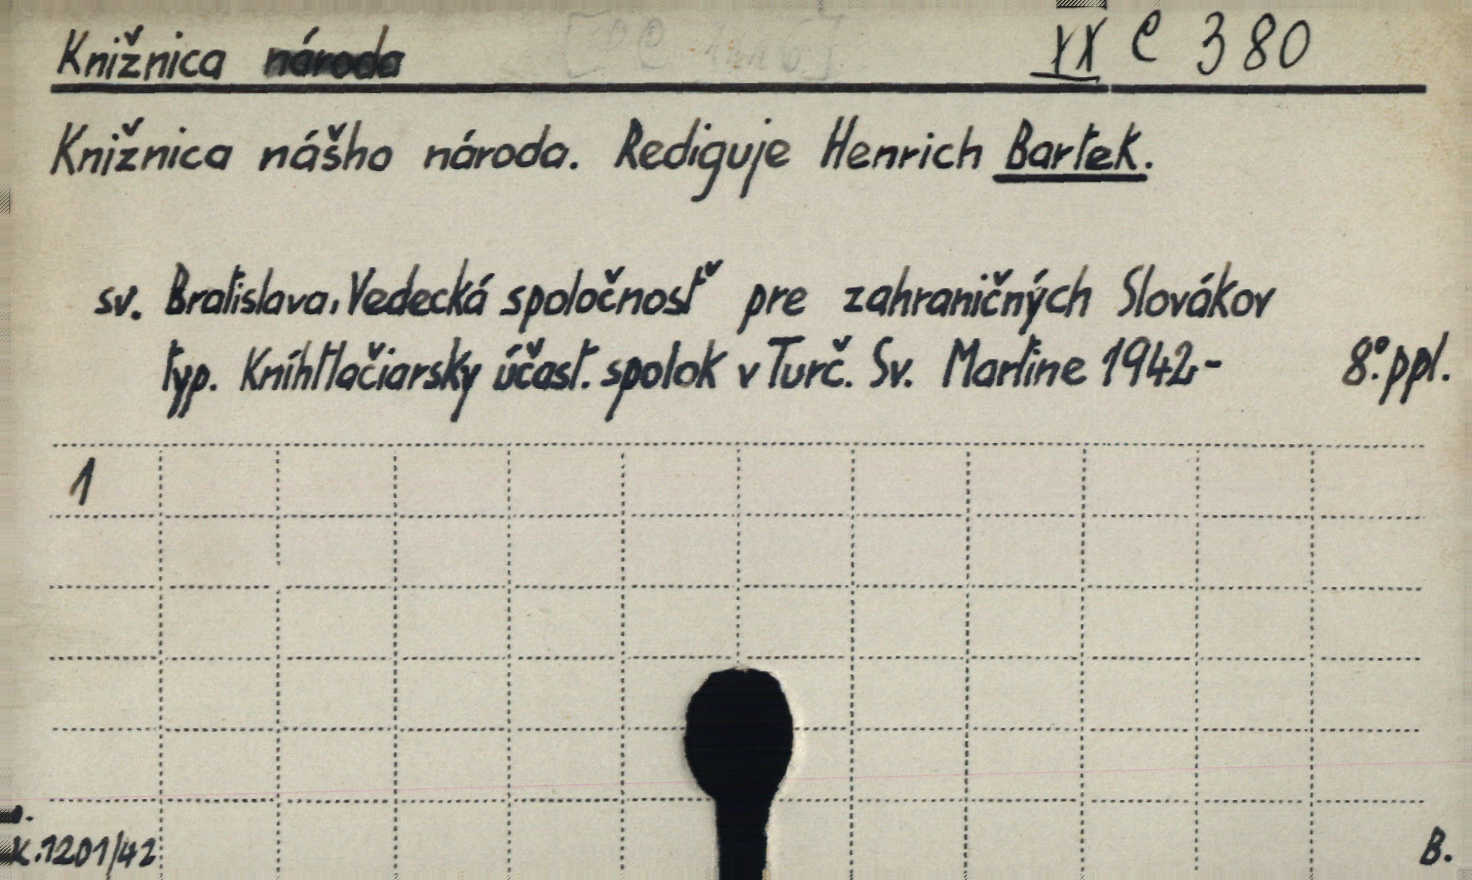 Knižnica národa XX C 380
Knižnica nášho národa. Rediguje Henrich Bartek.
sv. Bratislava, Vedecká spoločnosť pre zahraničných Slovákov
typ. Kníhtlačiarsky účast. spolok v Turč. Sv. Martine 1942- 8°.ppl.
1
K.1201/42 B.